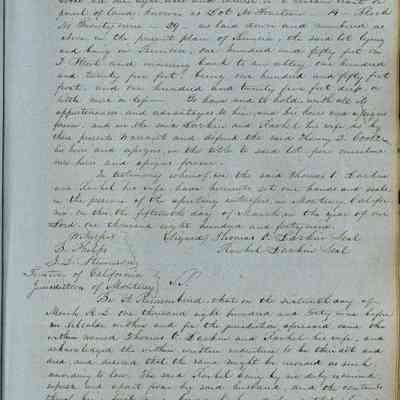 point of land, known as Lot No Fourteen 14 Block
No Thirty nine 39, as laid down and numbered as
above in the present plan of Benicia, the said lot lying
and being in Benicia, one hundred and fifty feet on
I Street and running back to an alley, one hundred
and twenty five feet, being one hundred and fifty feet
front, and one hundred and twenty five feet deep, or
little more or less. To have and to hold with all its
appurtenances and advantages to him, and his heirs and assigns
forever, and we the said Larkin and Rachel his wife do by
these presents Warrant and defend the said Henry
his heirs and assigns, in the title to said lot for ourselves
our heirs and assigns forever.
In testimony whereof we the said Thomas O. Larkin
and Rachel his wife, have hereunto set our hands and seals
in the presence of the subscribing witnesses, in Monterey Califor
nia on this the fifteenth day of March in the year of our
Lord, one thousand eight hundred and forty nine
Witness Signed Thomas O. Larkin Seal
Rachel Larkin Seal
Territory of California
Jurisdiction of Monterey
Be it Remembered that on the sixteenth day of
March A.D. one thousand eight hundred and forty nine before
me within and for the jurisdiction aforesaid came the
within named Thomas O. Larkin and Rachel his wife, and
acknowledged the within written indenture to be their act and
deed, and desired that the same might be recorded as such,
according to law. The said Rachel being by me duly examined
separate and apart from her said husband, and the contents